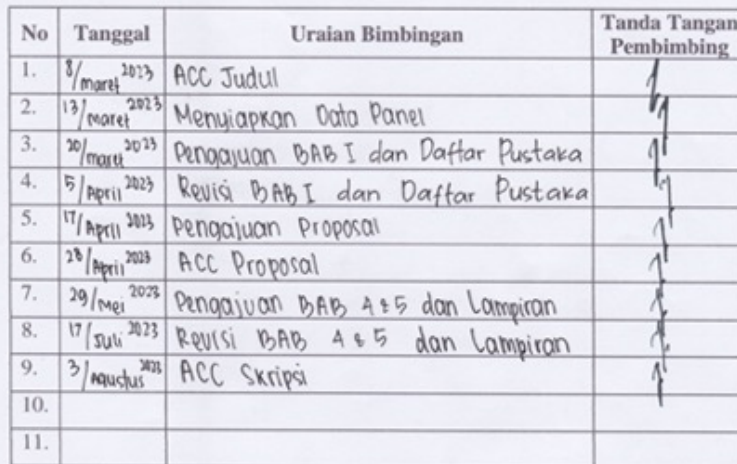 No Tanggal Uraian Bimbingan Tanda Tangan Pembimbing
1. 8/maret 2023 ACC Judul
2. 13/maret 2023 Menyiapkan Data Panel
3. 20/maret 2023 Pengajuan BAB I dan Daftar Pustaka
4. 5/April 2023 Revisi BAB I dan Daftar Pustaka
5. 17/April 2023 Pengajuan Proposal
6. 28/April 2023 ACC Proposal
7. 29/Mei 2023 Pengajuan BAB 4 & 5 dan Lampiran
8. 17/Juli 2023 Revisi BAB 4 & 5 dan Lampiran
9. 3/Agustus 2023 ACC Skripsi
10.
11.